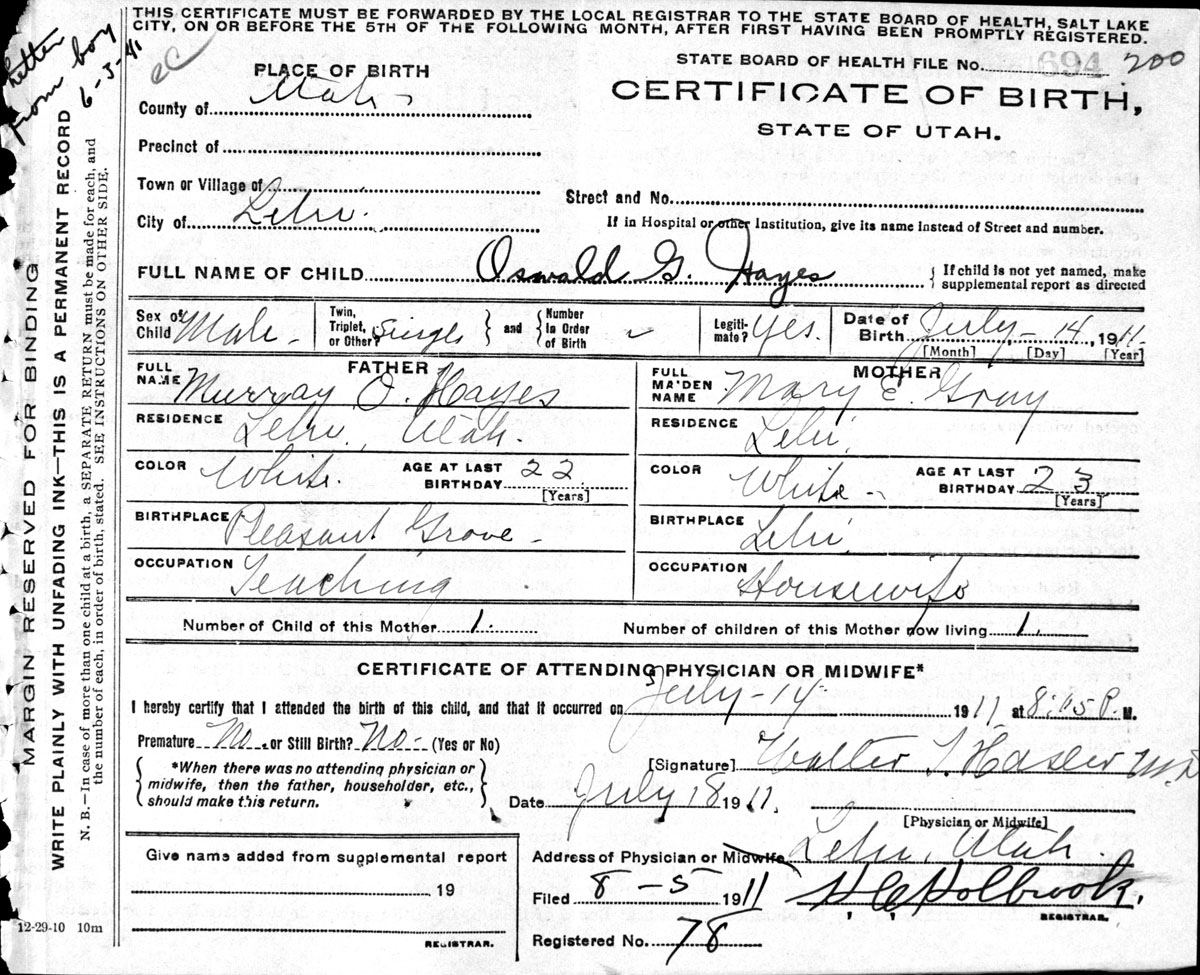 THIS CERTIFICATE MUST BE FORWARDED BY THE LOCAL REGISTRAR TO THE STATE BOARD OF HEALTH, SALT LAKE
CITY, ON OR BEFORE THE 5TH OF THE FOLLOWING MONTH, AFTER FIRST HAVING BEEN PROMPTLY REGISTERED.
Letter
from boy
6-3-41
MARGIN RESERVED FOR BINDING
WRITE PLAINLY WITH UNFADING INK—THIS IS A PERMANENT RECORD
N. B.—In case of more than one child at a birth, a SEPARATE RETURN must be made for each, and
the number of each, in order of birth, stated. SEE INSTRUCTIONS ON OTHER SIDE.
STATE BOARD OF HEALTH FILE No. 694 200
PLACE OF BIRTH
CERTIFICATE OF BIRTH,
County of Utah
STATE OF UTAH.
Precinct of
Town or Village of
Street and No.
City of Lehi.
If in Hospital or other Institution, give its name instead of Street and number.
FULL NAME OF CHILD Oswald G. Hayes { If child is not yet named, make
supplemental report as directed
Sex of Child Male - Twin, Triplet, or Other? Single } and { Number in Order of Birth Legiti-mate? Yes. Date of Birth July - 14, 1911.
[Month] [Day] [Year]
FATHER MOTHER
FULL NAME Murray O. Hayes FULL MAIDEN NAME Mary E. Gray
RESIDENCE Lehi, Utah. RESIDENCE Lehi,
COLOR White. AGE AT LAST BIRTHDAY 22 [Years] COLOR White - AGE AT LAST BIRTHDAY 23 [Years]
BIRTHPLACE Pleasant Grove - BIRTHPLACE Lehi,
OCCUPATION Teaching OCCUPATION Housewife
Number of Child of this Mother 1. Number of children of this Mother now living 1.
CERTIFICATE OF ATTENDING PHYSICIAN OR MIDWIFE*
I hereby certify that I attended the birth of this child, and that it occurred on July - 14 1911 at 8:15 P. M.
Premature No. or Still Birth? No- (Yes or No)
{ *When there was no attending physician or
midwife, then the father, householder, etc.,
should make this return. }
[Signature] Walter T. Hasler M.D.
Date July 18 1911.
[Physician or Midwife]
Give name added from supplemental report
19
REGISTRAR.
Address of Physician or Midwife Lehi, Utah.
Filed 8-5 1911 H C Holbrook.
REGISTRAR.
Registered No. 78
12-29-10 10m